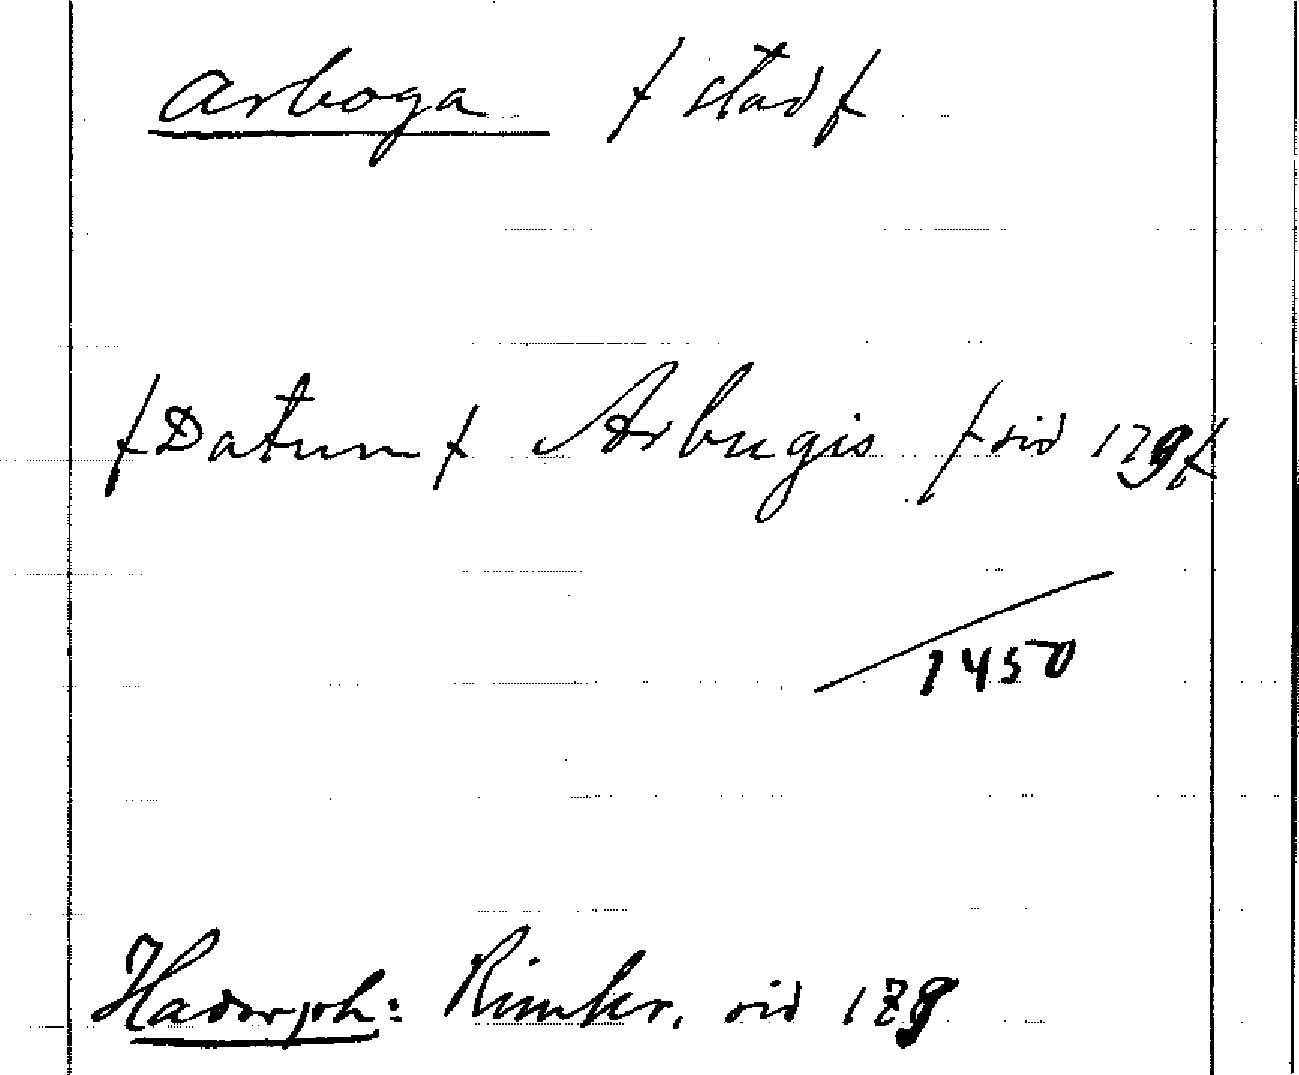 Arboga / stad /
/ Datum / Arbugis / sid 179 /
1450
Hadorph: Rimkr. sid 179